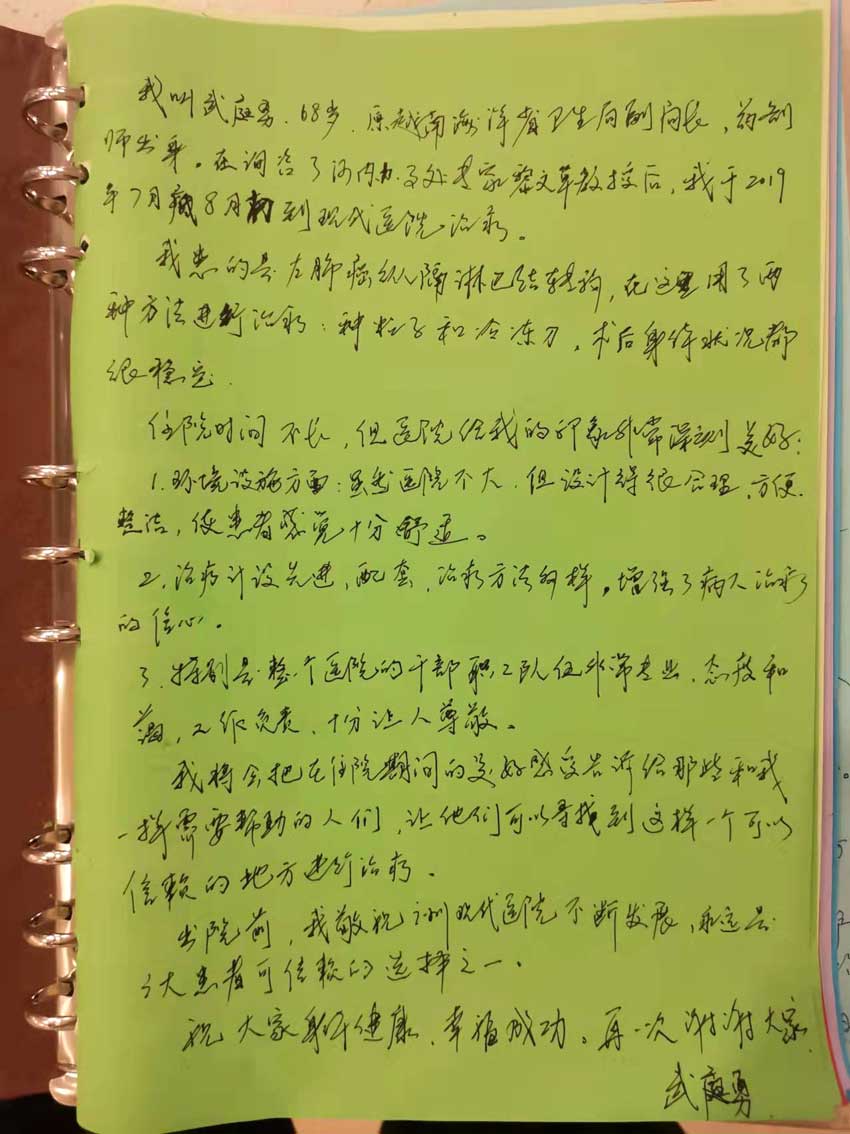 我叫武庭勇、68岁、原越南海洋省卫生局副局长，药剂
师出身。在询咨了河内办事处专家黎文草教授后，我于2019
年7月 8月 到现代医院治疗。
我患的是左肺癌纵隔淋巴结转移，在这里用了两
种方法进行治疗：种粒子和冷冻刀，术后身体状况都
很稳定.
住院时间不长，但医院给我的印象非常深刻美好：
1.环境设施方面：虽然医院不大.但设计得很合理、方便.
整洁，使患者感觉十分舒适。
2.治疗计设先进，配套，治疗方法多样。增强了病人治疗
的信心。
3.特别是整个医院的干部职工队伍非常专业、态度和
蔼，工作负责、十分让人尊敬。
我将会把在住院期间的美好感受告诉给那些和我
一样需要帮助的人们，让他们可以寻找到这样一个可以
信赖的地方进行治疗。
出院前，我敬祝 现代医院不断发展、永远是
广大患者可信赖的选择之一。
祝大家身体健康、幸福成功。再一次谢谢大家
武庭勇